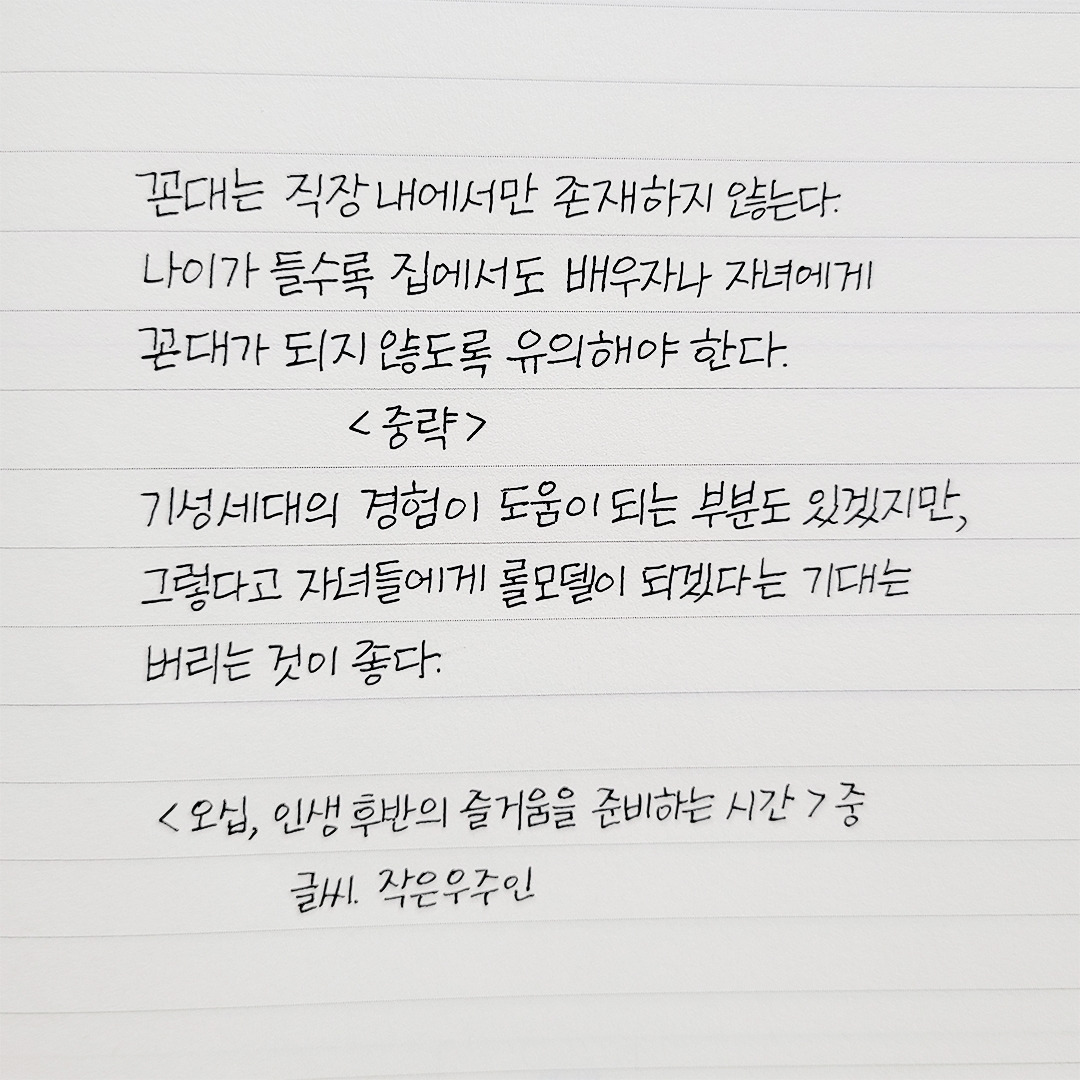 꼰대는 직장 내에서만 존재하지 않는다.
나이가 들수록 집에서도 배우자나 자녀에게
꼰대가 되지 않도록 유의해야 한다.
<중략>
기성세대의 경험이 도움이 되는 부분도 있겠지만,
그렇다고 자녀들에게 롤모델이 되겠다는 기대는
버리는 것이 좋다.
<오십, 인생 후반의 즐거움을 준비하는 시간> 중
글씨. 작은우주인